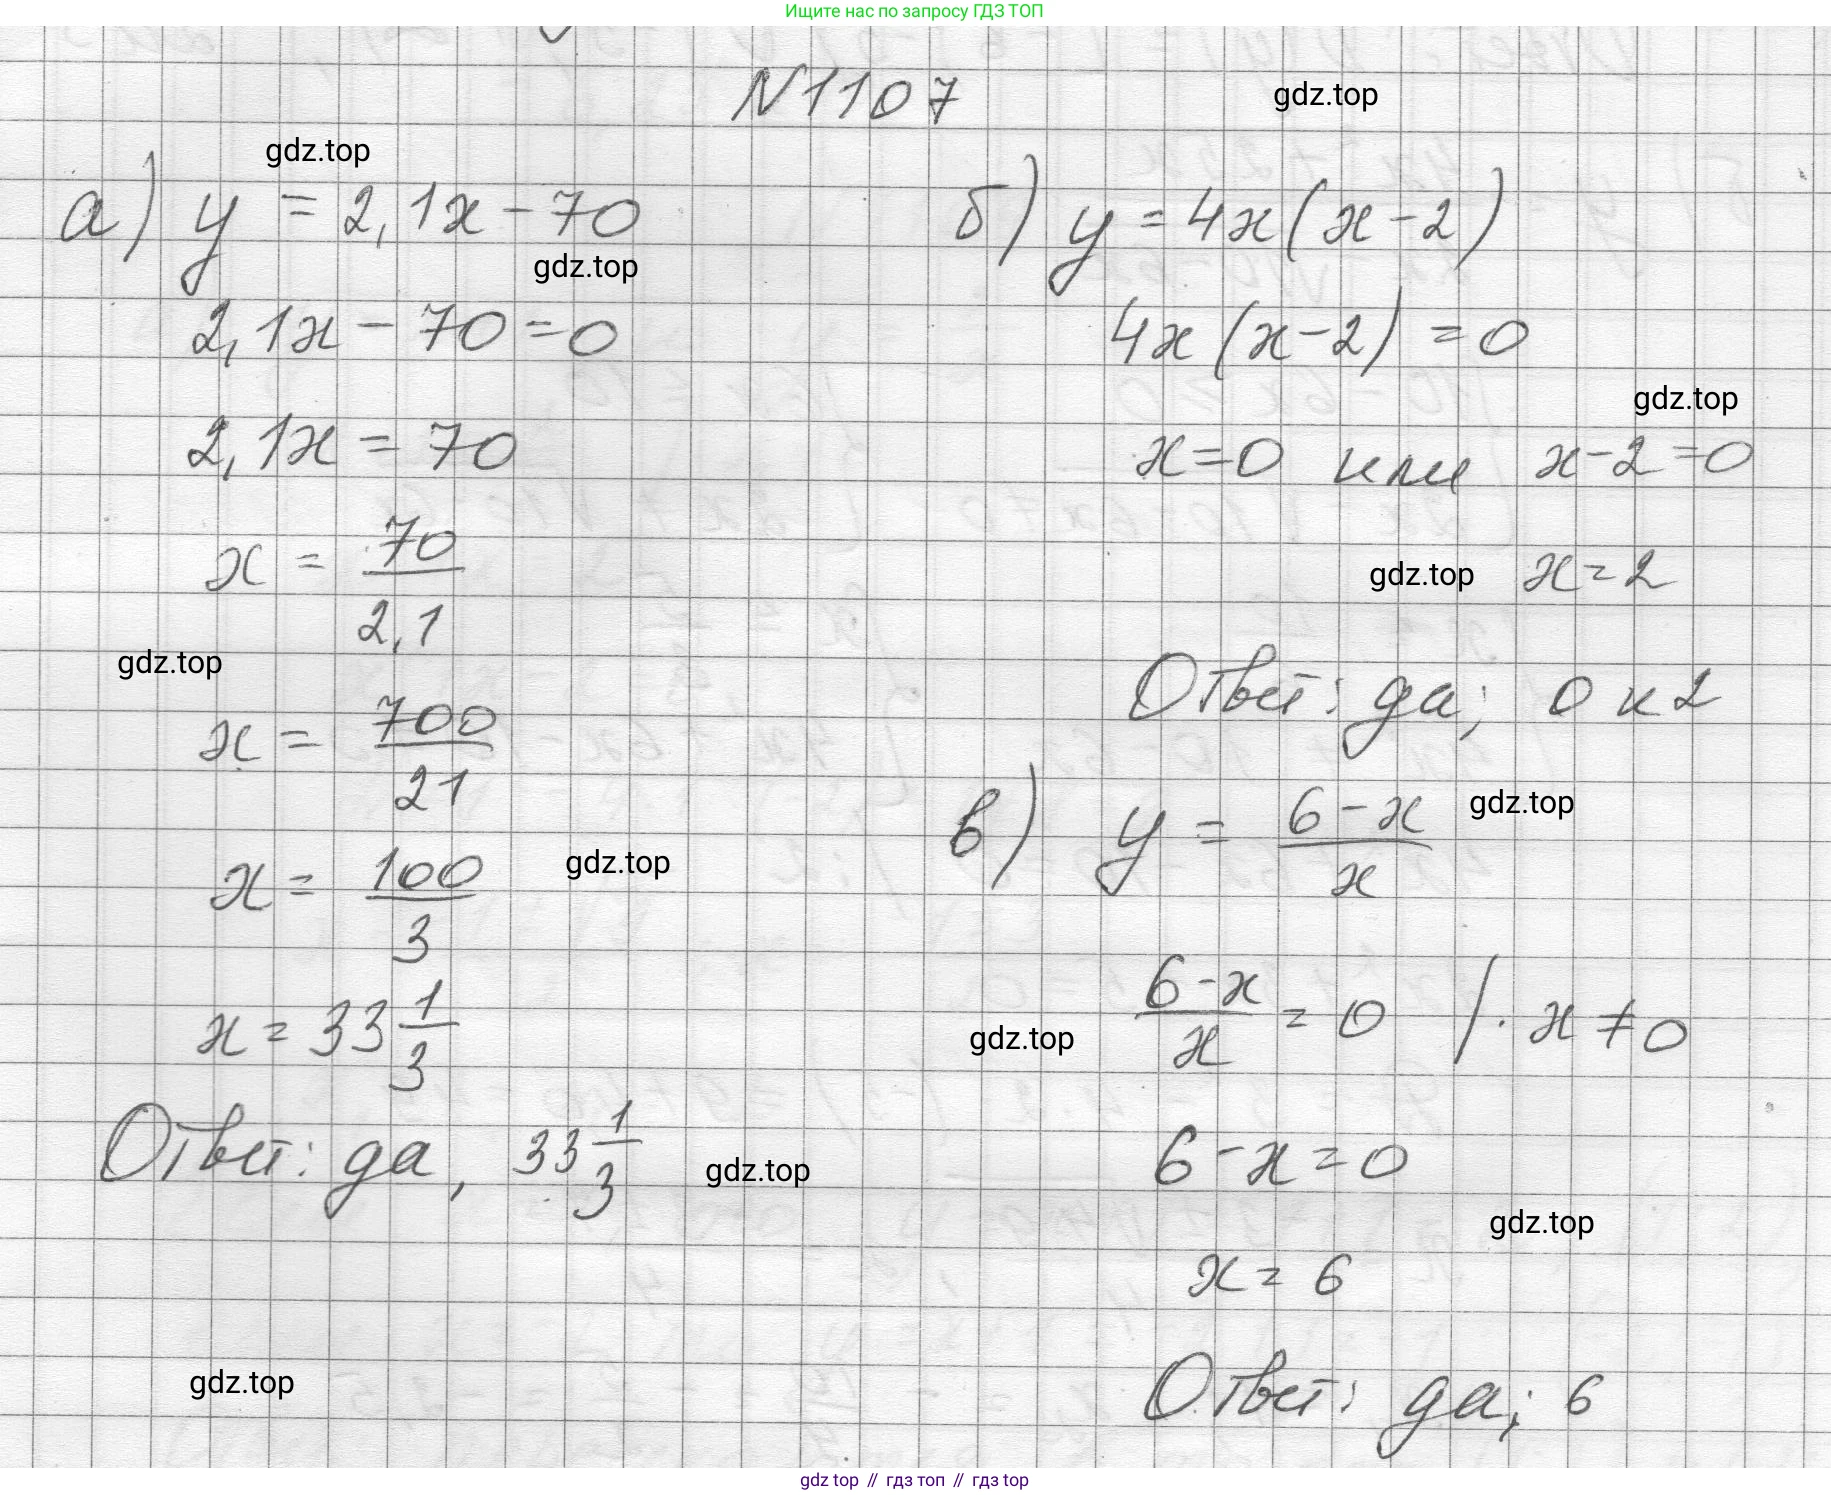 Ищите нас по запросу ГДЗ ТОП
N1107
gdz.top
gdz.top
а) y = 2,1x - 70
gdz.top
2,1x - 70 = 0
2,1x = 70
x = 70/2,1
gdz.top
x = 700/21
x = 100/3
gdz.top
x = 33 1/3
Ответ: да, 33 1/3
gdz.top
gdz.top
б) y = 4x(x-2)
4x(x-2) = 0
gdz.top
x=0 или x-2=0
gdz.top
x=2
Ответ: да; 0 и 2
в) y = (6-x)/x
gdz.top
(6-x)/x = 0 /· x ≠ 0
gdz.top
6-x=0
gdz.top
x = 6
Ответ: да; 6
gdz top // гдз топ // гдз top